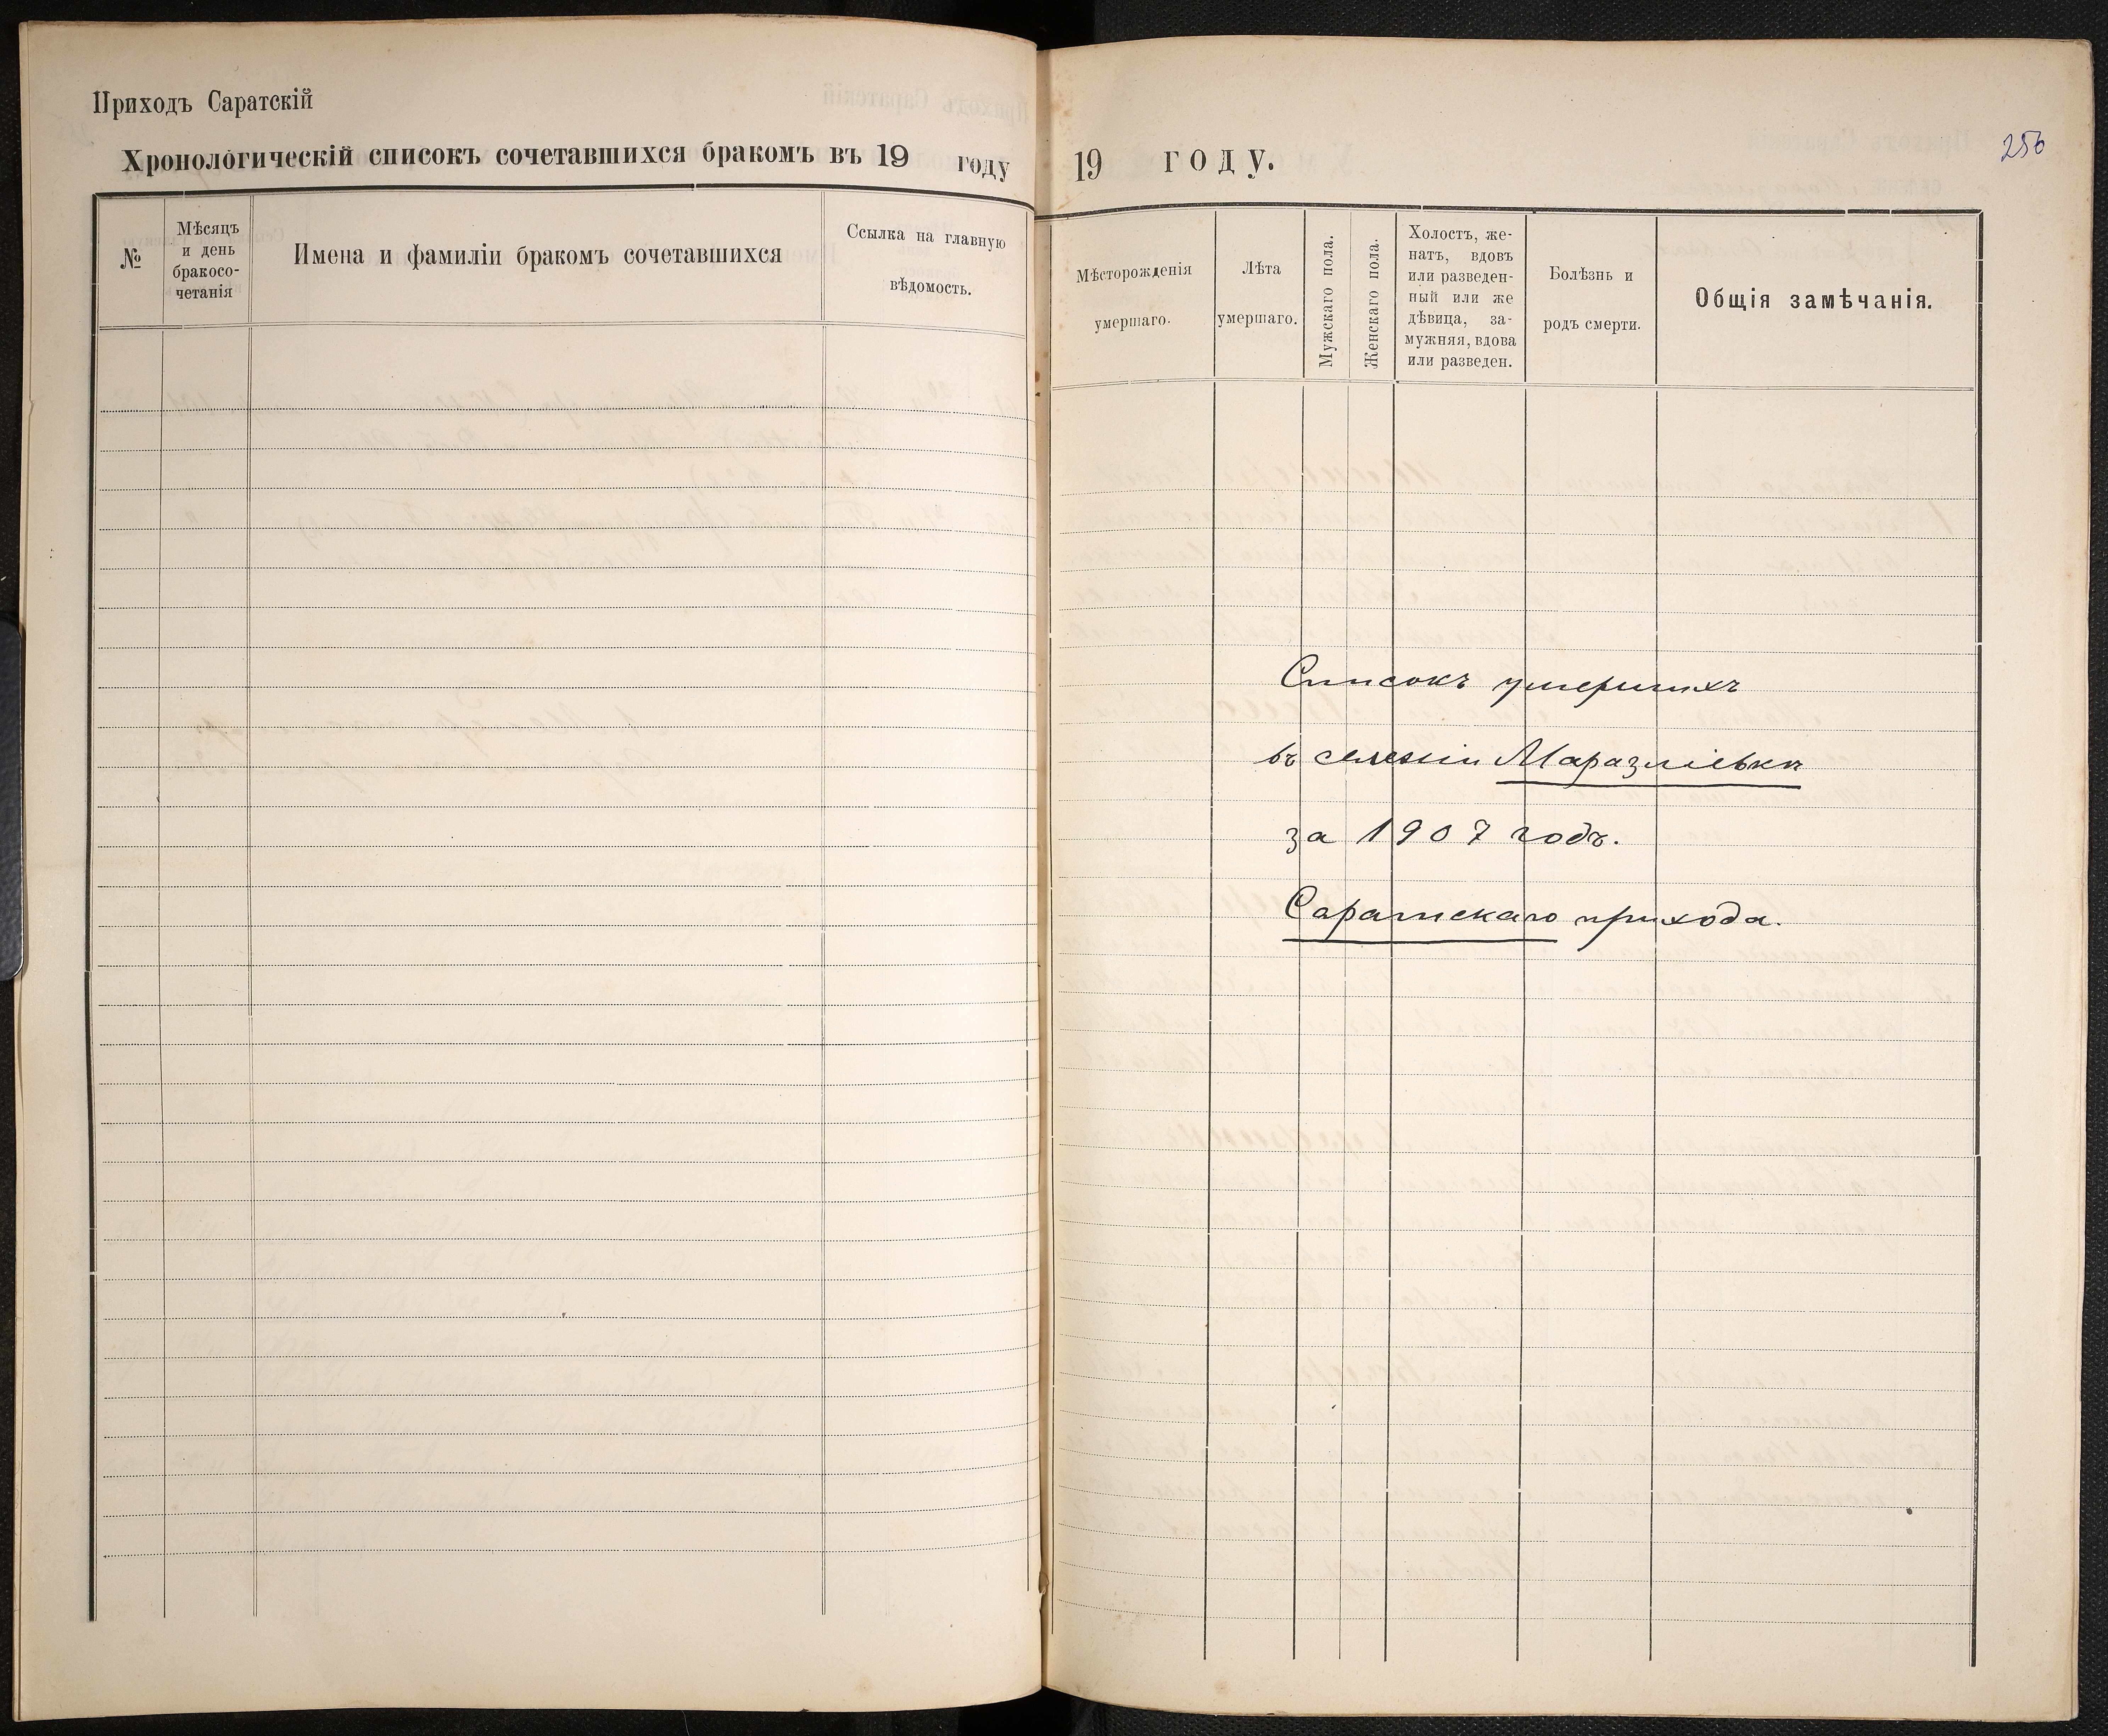 Приходъ Саратскій
Хронологическій списокъ сочетавшихся бракомъ въ 19 году
№
Мѣсяцъ
и день
бракосо-
четанія
Имена и фамиліи бракомъ сочетавшихся
Ссылка на главную
вѣдомость.
19 году.
256
Мѣсторожденія
умершаго.
Лѣта
умершаго.
Мужскаго пола.
Женскаго пола.
Холостъ, же-
натъ, вдовъ
или разведен-
ный или же
дѣвица, за-
мужняя, вдова
или разведен.
Болѣзнь и
родъ смерти.
Общія замѣчанія.
Списокъ умершихъ
въ селеніи Маразліевкѣ
за 1907 годъ.
Саратскаго прихода.